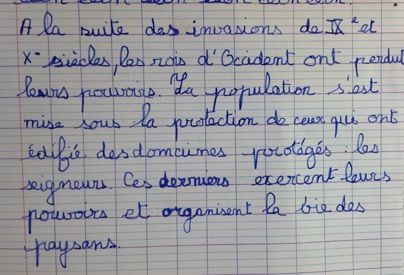 A la suite des invasions de IX e et
X e siècles, les rois d'Occident ont perdu
leurs pouvoirs. La population s'est
mise sous la protection de ceux qui ont
édifié des domaines protégés : les
seigneurs. Ces derniers exercent leurs
pouvoirs et organisent la vie des
paysans.